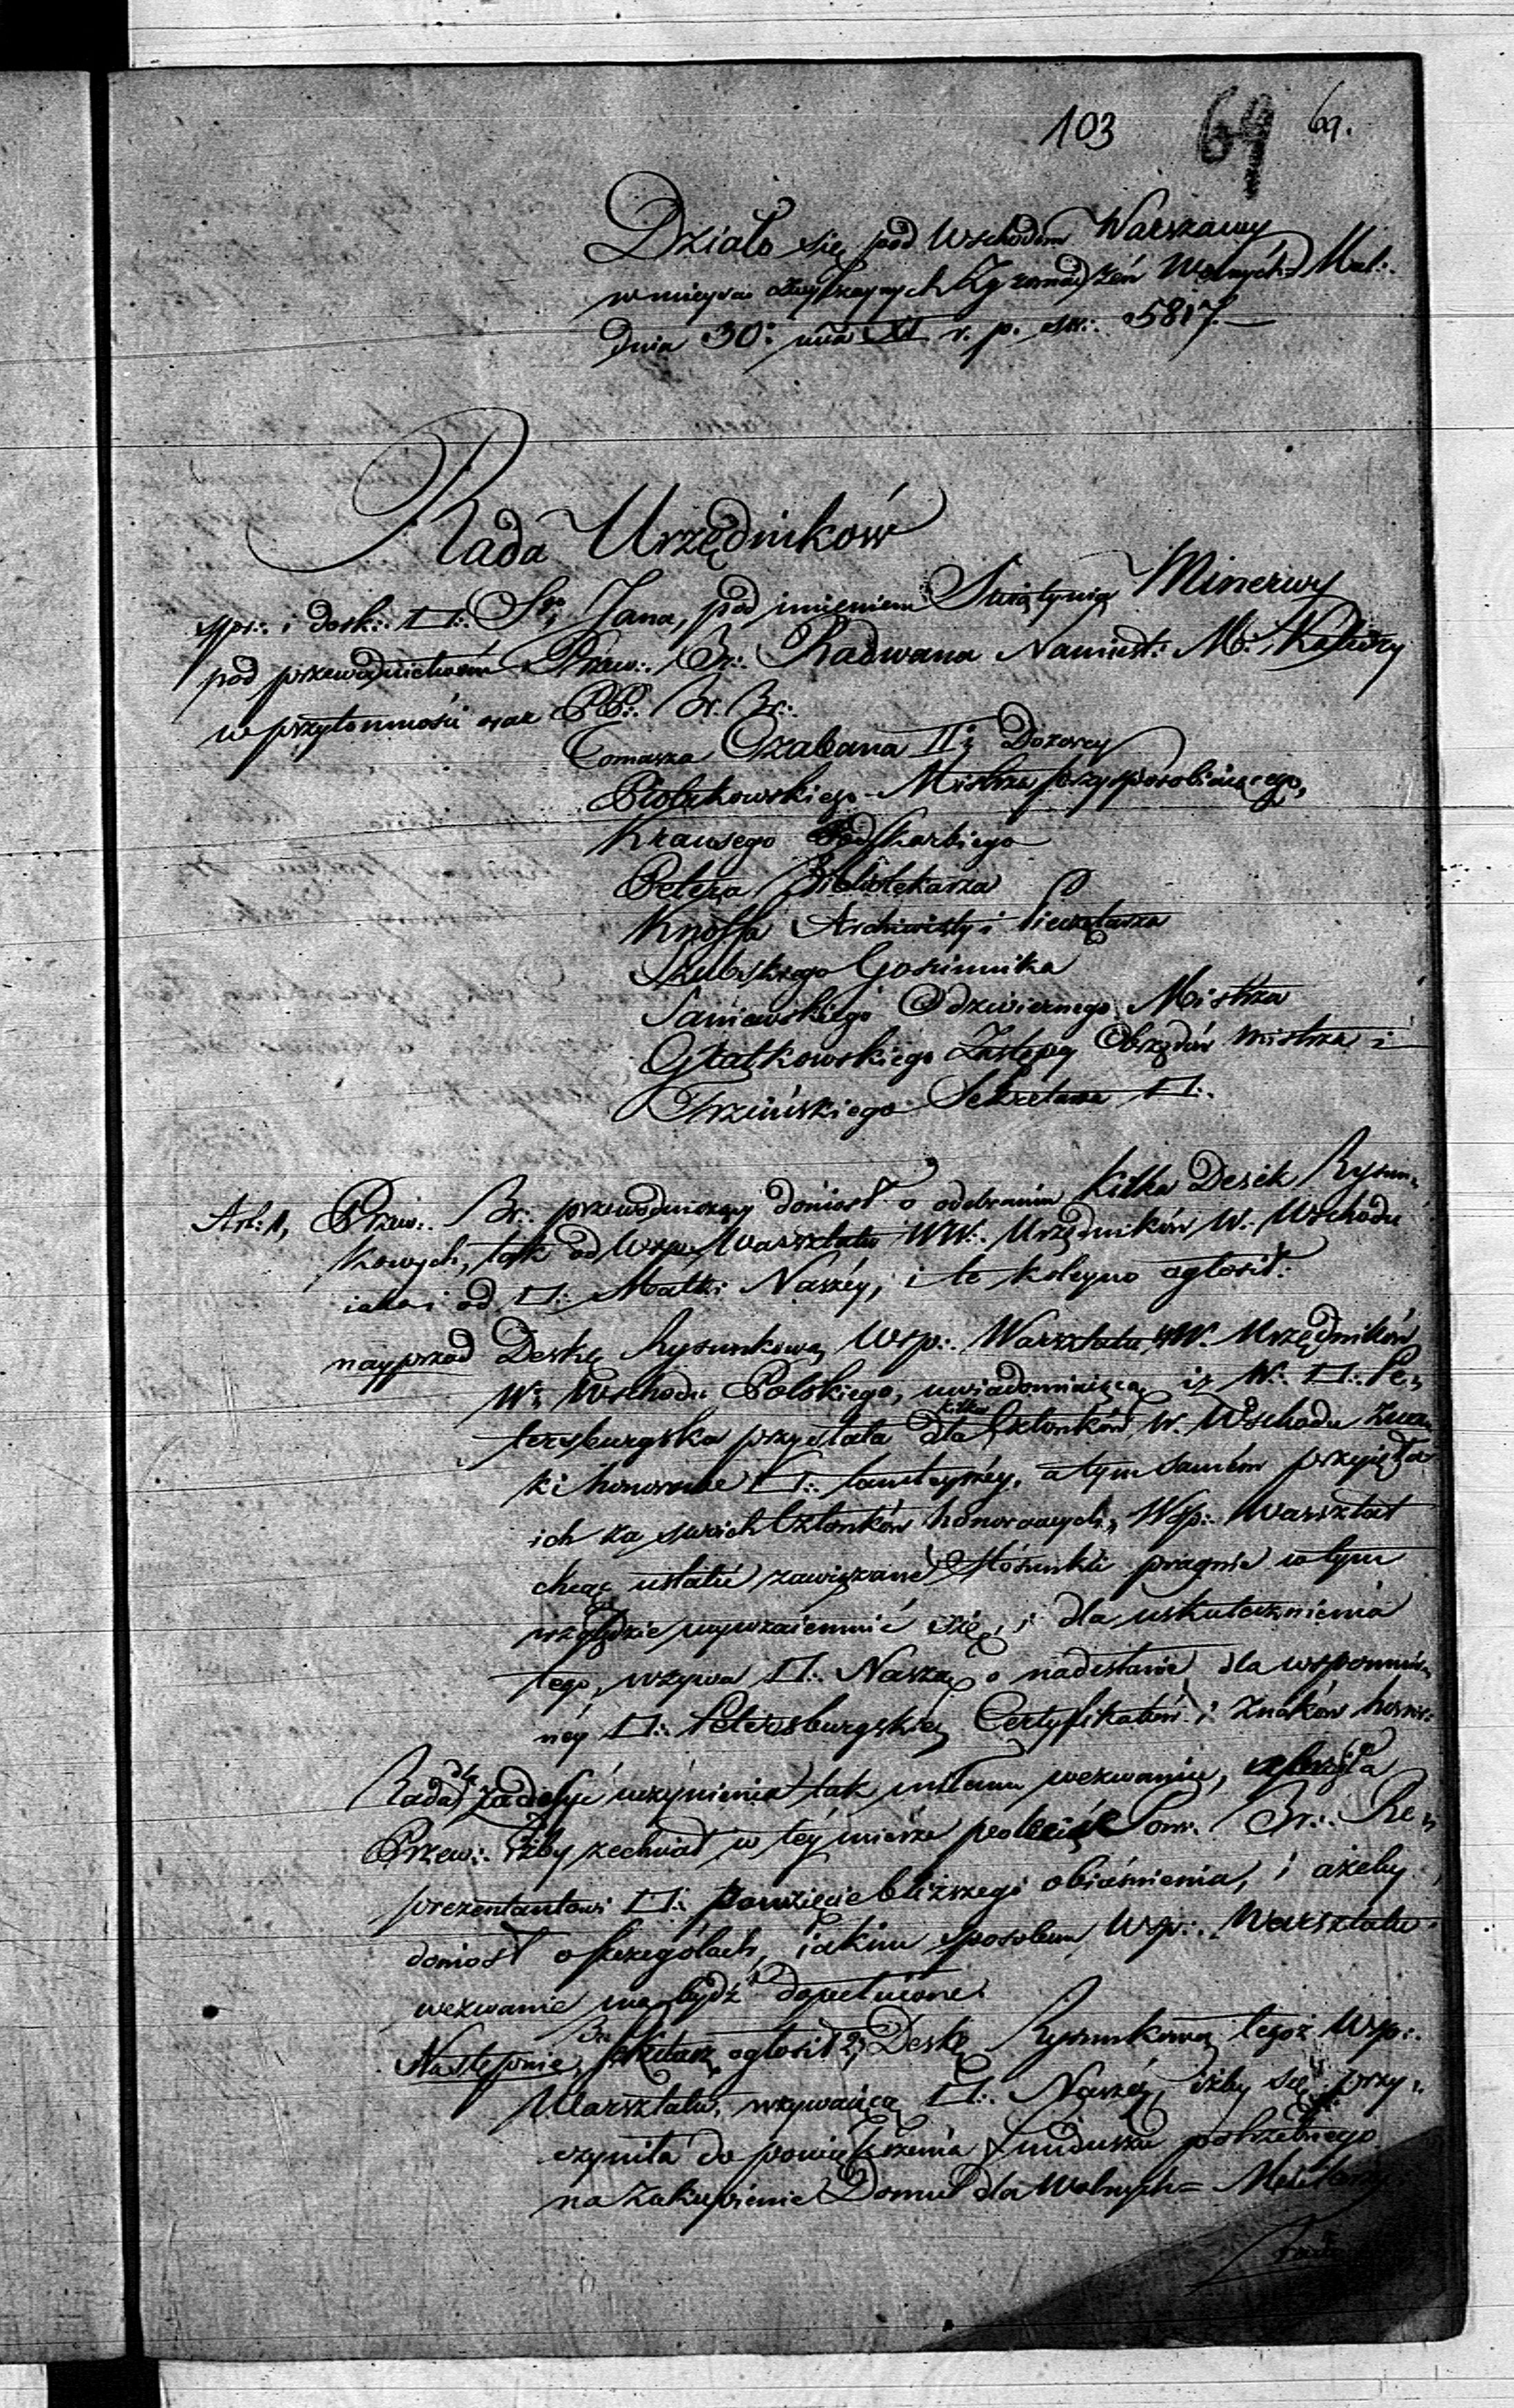 103 64 69.
Działo się pod Wschodem Warszawy
w mieyscu zwyczaynych Zgromadzeń Wolnych Mul:.
dnia 30: mca XI r. p. św:. 5817.
Rada Urzędników
spr:. i dosk:. □:. S.go Jana, pod imieniem Swiątynia Minerwy
pod przewodnictwem Przew:. Br:. Radwana Namiest: M:. Katedry
w przytomności oraz PP:. Br. Br:.
Tomasza Czabana II: Dozorcy
Mistrza przysposobiaiącego,
Krausego Podskarbiego
Petera Bibliotekarza
Knoffa Archiwisty i Pieczętarza
Szubskiego Gościnnika
Saniewskiego Odzwiernego Mistrza
Gzatkowskiego Zastępcy Obrzędów Mistrza i
Trzcińskiego Sekretarza □:.
Art: 1, Przew:. Br:. przewodniczący doniosł o odebraniu kilka Desek Rysun„
kowych, tak od Wsp:. Warsztatu WW:. Urzędników W:. Wschodu
iako i od □:. Matki Naszéy, i te koleyno ogłosił:
nayprzod Deskę Rysunkową Wsp:. Warsztatu WW. Urzędników
W:. Wschodu Polskiego, uwiadomiaiącą iż W:. □:. Pe„
tersburgska przysłała dla kilku Członków W. Wschodu Zna„
ki honorowe □:. tamteyszéy, a tym samém przyięła
ich za swoich Członków honorowych, Wsp:. Warsztat
chcąc ustalić zawiązane Stósunki pragnie w tym
względzie wywzaiemnić się, i dla uskutecznienia
tego, wzywa □:. Naszą o nadesłanie dla wspomnio„
néy □:. Petersburgskiéy Certyfikatów i Znaków honor:
Rada dla zadosyć uczynienia tak miłemu wezwaniu,
Przew:. iżby zechciał w téy mierze polecić Pow. Br:. Re„
prezentantowi □:. powzięcie bliższego obiaśnienia, i ażeby
doniosł o szczegółach, iakim sposobem Wsp:. Warsztatu
wezwanie ma bydź dopełnione.
Następnie, Br. Sekretarz ogłosił 2gą Deskę Rysunkową tegoż Wsp:.
Warsztatu, wzywaiącą □:. Naszéy, iżby się przy„
czyniła do powiększenia Funduszu potrzebnego
na zakupienie Domu dla Wolnych= Mularzy